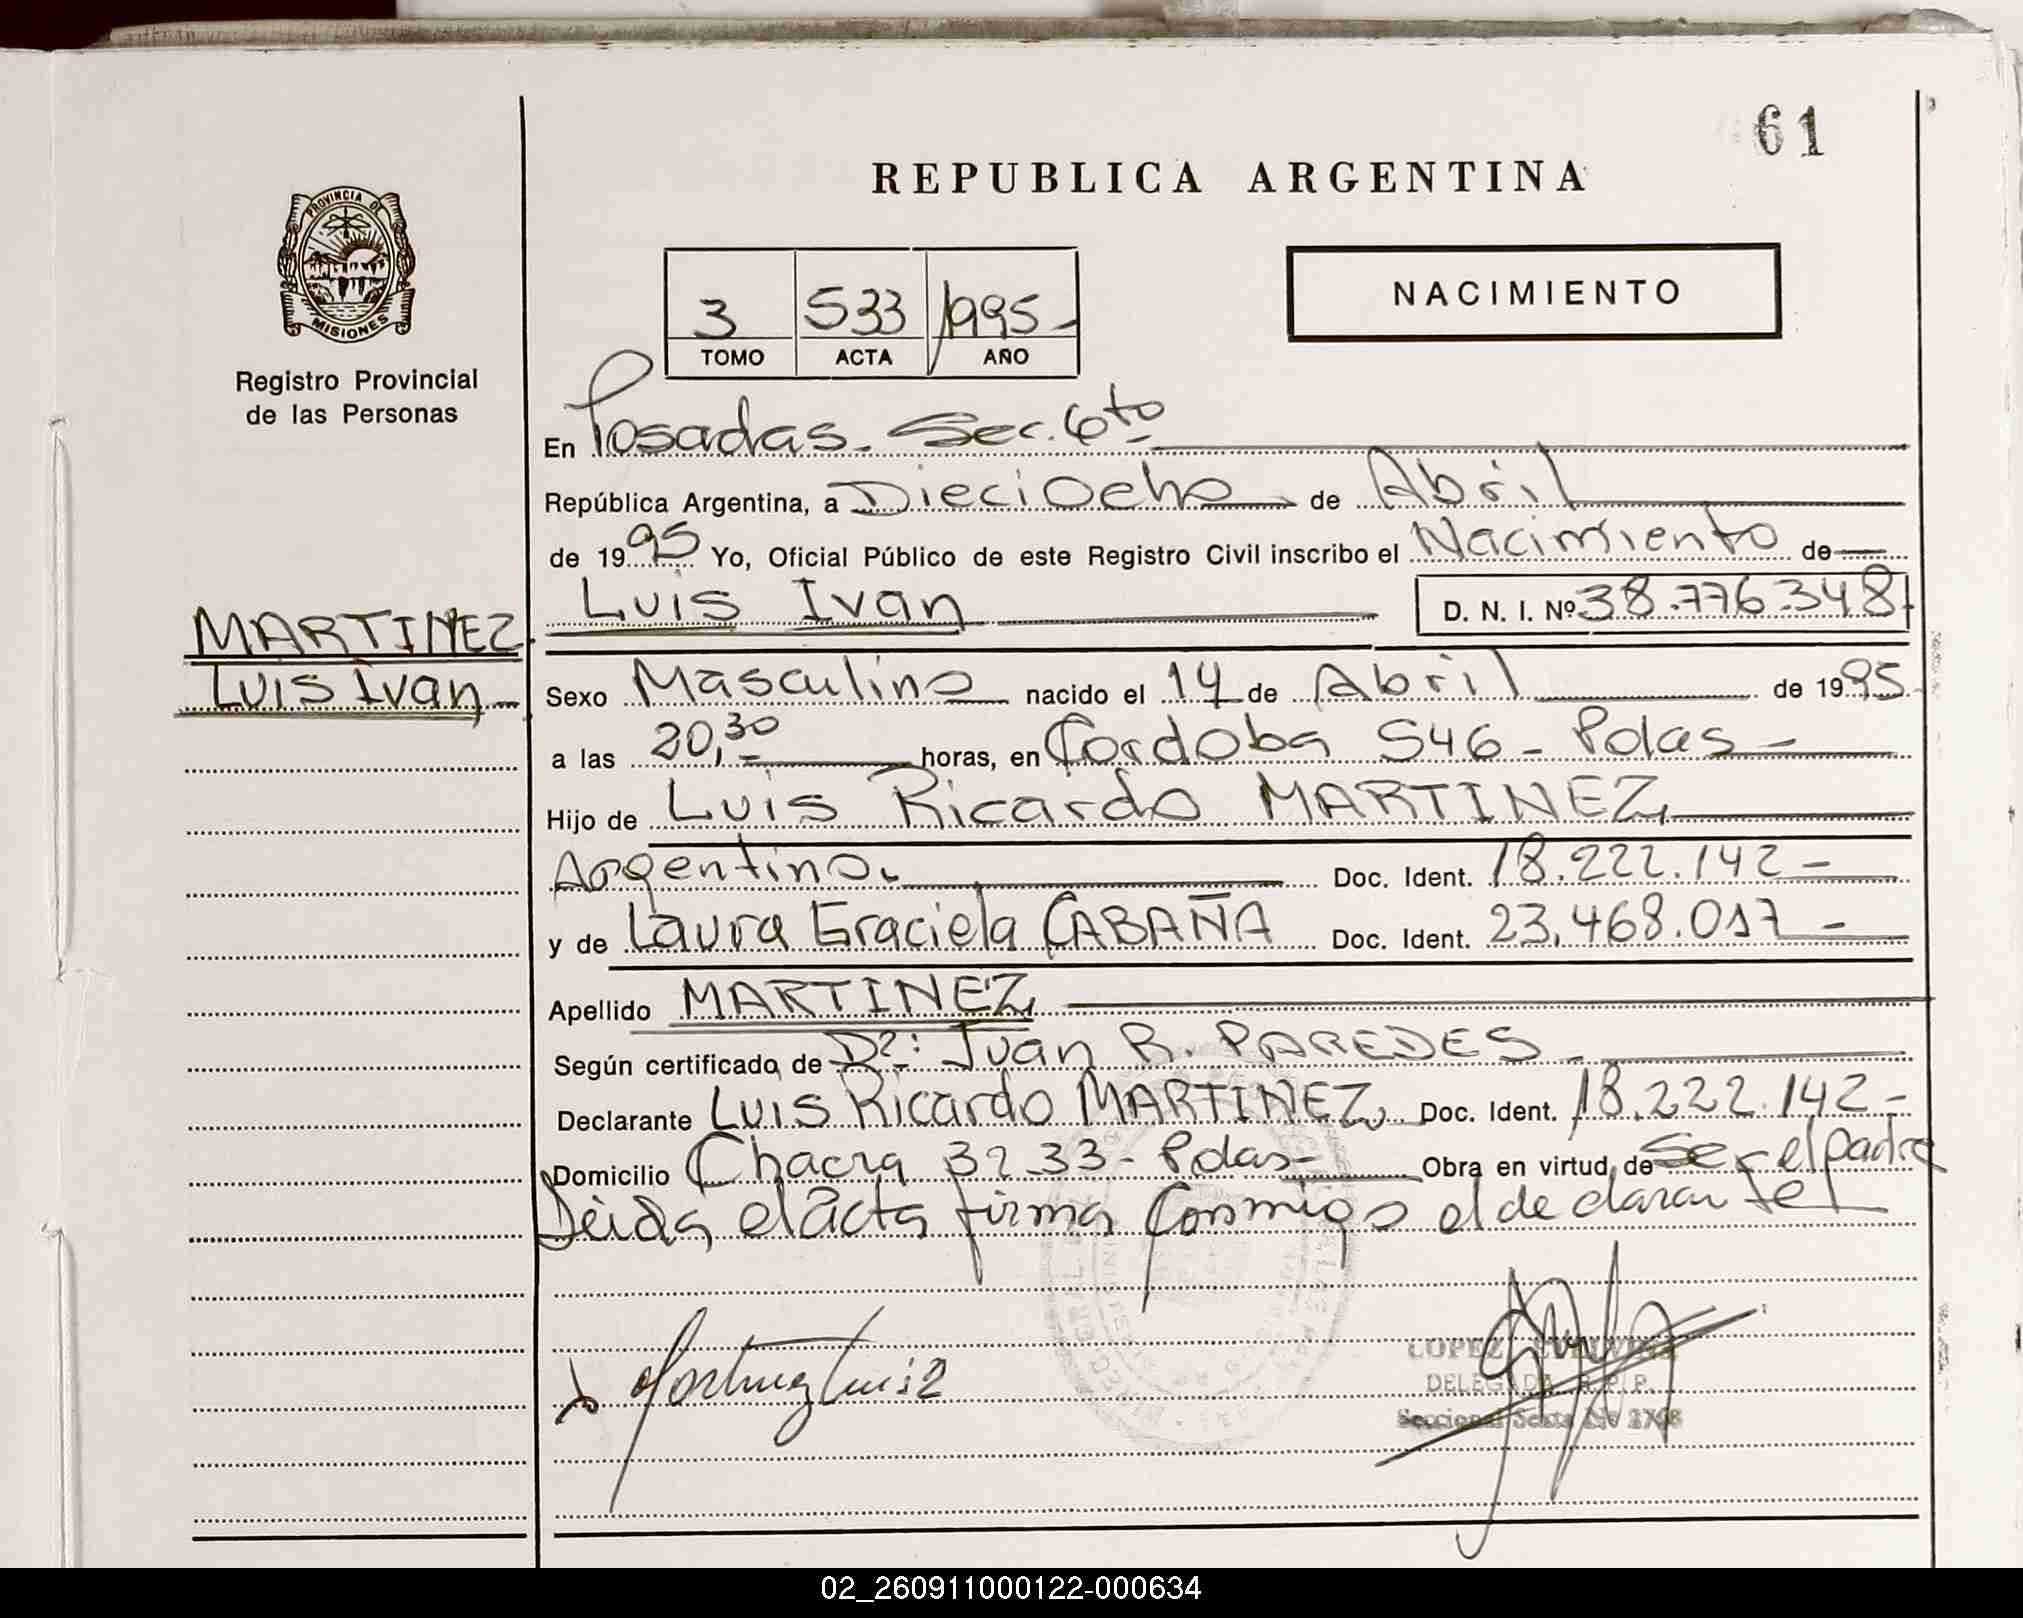 61
REPUBLICA ARGENTINA
PROVINCIA DE
MISIONES
Registro Provincial
de las Personas
3 533 1995-
TOMO ACTA AÑO
NACIMIENTO
En Posadas - Sec. 6to
República Argentina, a Dieciocho de Abril
de 1995 Yo, Oficial Público de este Registro Civil inscribo el Nacimiento de
Luis Ivan D. N. I. Nº 38.776.348
MARTINEZ
Luis Ivan
Sexo Masculino nacido el 14 de Abril de 1995
a las 20,30 horas, en Cordoba 546 - Pdas -
Hijo de Luis Ricardo MARTINEZ
Argentino. Doc. Ident. 18.222.142 -
y de Laura Graciela CABAÑA Doc. Ident. 23.468.017 -
Apellido MARTINEZ
Según certificado de Dr: Juan R. PAREDES
Declarante Luis Ricardo MARTINEZ Doc. Ident. 18.222.142 -
Domicilio Chacra 32-33 - Pdas - Obra en virtud de Ser el padre
Leida el acta firma conmigo el declarante
Martinez Luis R
LOPEZ
DELEGADA R.P.P.
Seccional Sexta
02_260911000122-000634